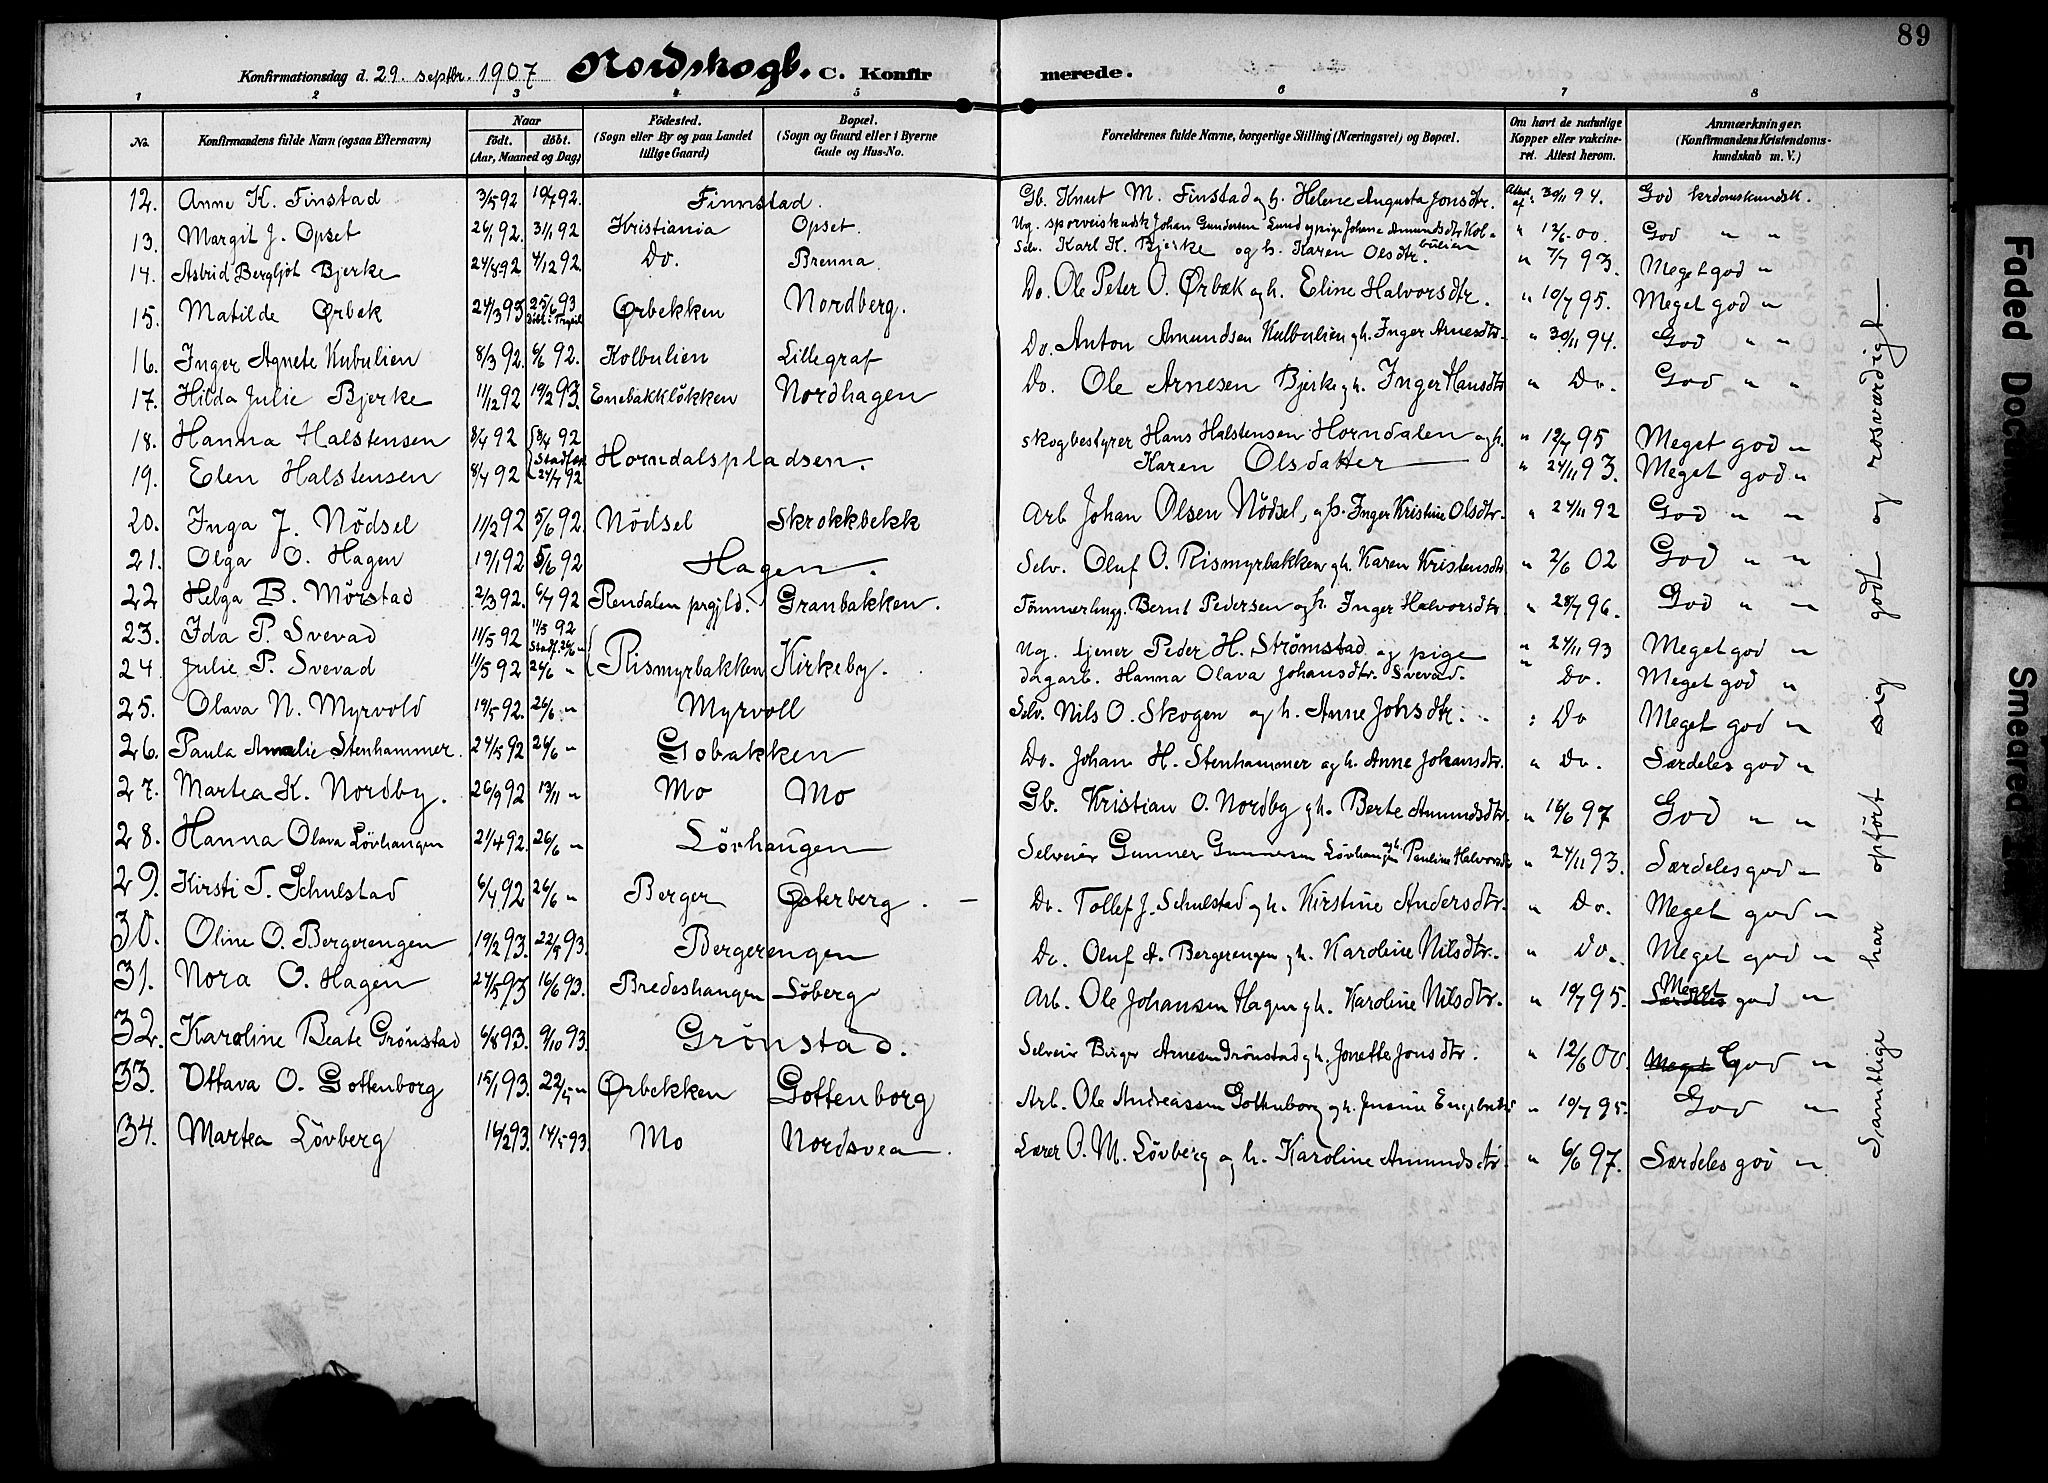 89
Konfirmationsdag d. 29. septbr. 1907 Nordskogb. C. Konfirmerede.
1 2 3 4 5 6 7 8
No.
Konfirmandens fulde Navn (ogsaa Efternavn)
Naar
födt. döbt.
(Aar, Maaned og Dag)
Födested.
(Sogn eller By og paa Landet
tillige Gaard)
Bopæl.
(Sogn og Gaard eller i Byerne
Gade og Hus-No.
Forældrenes fulde Navne, borgerlige Stilling (Næringsvei) og Bopæl.
Om havt de naturlige
Kopper eller vakcine-
ret. Attest herom.
Anmærkninger.
(Konfirmandens Kristendoms-
kundskab m. V.)
12. Anne K. Finstad 3/5 92 10/7 92. Finnstad. Gb. Knut M. Finstad og h. Helene Augusta Jonsdtr. 30/11 94. God krdomskundsk.
13. Margit J. Opset 26/1 92. 31/1 92 Kristiania Opset. Ug. sporveiskudsk Johan Gundersen Lund og pige Johane Amundsdtr Kol- bulien " 12/6 00. God " "
14. Astrid Bergljót Bjerke 24/8 92 4/12 92. Do. Brenna. Selv. Karl K. Bjerke og h. Karen Olsdtr. " 7/7 93. Meget god "
15. Matilde Ørbek 24/3 93 25/6 93 Ørbekken Nordberg. Do. Ole Peter O. Ørbæk og h. Eline Halvorsdtr. " 10/7 95. Meget god "
16. Inger Agnete Kubulien 8/3 92. 6/6 92. Kolbulien Lillegraf Do. Anton Amundsen Kulbulien g h. Inger Arnesdtr. " 30/11 94. God " "
17. Hilda Julie Bjerke 11/12 92 19/2 93. Enebakkløkken Nordhagen Do. Ole Arnesen Bjerke g h. Inger Hansdtr " Do. God " "
18. Hanna Halstensen 8/4 92 8/4 92 Horndalspladsen. skogbestyrer Hans Halstensen Horndalen og h. " 12/7 95 Meget god "
19. Elen Halstensen 8/4 92 24/7 92 Karen Olsdatter " 24/11 93. Meget god "
20. Inga J. Nödsel 11/2 92 5/6 92 Nödsel Skrokkbekk Arb Johan Olsen Nödsel, og h. Inger Kristine Olsdtr. " 24/11 92 God " "
21. Olga O. Hagen 19/1 92 5/6 92 Hagen. Selv. Oluf O. Rismyrbakken g h. Karen Kristensdtr " 2/6 02 God " "
22 Helga B. Mörstad 2/3 92. 6/7 92 Rendalen prgjld. Granbakken. Tømmerhugg. Bernt Pedersen og h. Inger Halvorsdtr " 28/7 96. God " "
23. Ida P. Svevad 11/5 92 11/5 92 Rismyrbakken Kirkeby. Ug. tjener Peder H. Strømstad og pige " 24/11 93 Meget god "
24. Julie P. Svevad 11/5 92 26/6 " dagarb. Hanna Olava Johansdtr. Svevad. " Do. Meget god "
25. Olava N. Myrvold 19/5 92. 26/6 " Myrvoll Selv. Nils O. Skogen og h. Anne Johsdtr. " Do Meget god "
26. Paula Amalie Stenhammer. 24/5 92 26/6 " Gobakken Do. Johan H. Stenhammer og h. Anne Johansdtr. " Do. Særdeles god "
27. Martea K. Nordby. 26/9 92 13/11 " Mo Mo Gb. Kristian O. Nordby g h. Berte Amundsdtr. " 16/6 97 God " "
28. Hanna Olava Lövhaugen 21/4 92. 26/6 " Lövhaugen Selveier Gunner Gunnersen Lövhaugen og h. Pauline Halvorsdtr " 24/11 93. Særdeles god "
29. Kirsti T. Schulstad 6/4 92 26/6 " Berger Østerberg. Do. Tollef J. Schulstad og h. Kirstine Andersdtr. " Do. Meget god "
30. Oline O. Bergerengen 19/2 93. 22/5 93. Bergerengen Do. Oluf A. Bergerengen g h. Karoline Nilsdtr. " Do. Meget god "
31. Nora O. Hagen 27/5 93 16/6 93. Bredeshaugen Söberg Arb. Ole Johansen Hagen g h. Karoline Nilsdtr. " 10/7 95. Særdeles Meget god "
32. Karoline Beate Grönstad 6/8 93. 9/10 93. Grönstad. Selveier Birger Arnesen Grönstad g h. Jonette Jonsdtr. " 12/6 00. Meget God "
33. Ottava O. Gottenborg 15/1 93. 22/5 " Ørbekken Gottenborg Arb. Ole Andreassen Gottenborg g h. " 10/7 95. God "
34. Martea Lövberg 16/2 93. 14/5 93. Mo Nordsvea. Lærer O. M. Lövberg og h. Karoline Amundsdtr. " 6/6 97. Særdeles god "
Samtlige har opfört sig godt og rosværdigt.
Faded Document
Smeared